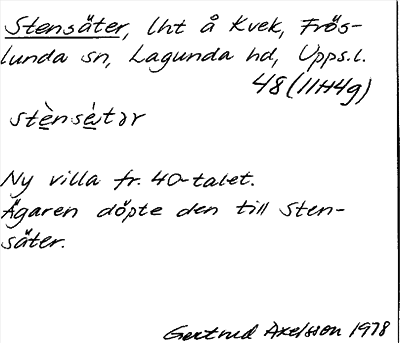 Stensäter, lht å Kvek, Frös-
lunda sn, Lagunda hd, Upps.l.
48 (11H4g)
stènsétər
Ny villa fr. 40-talet.
Ägaren döpte den till Sten-
säter.
Gertrud Axelsson 1978